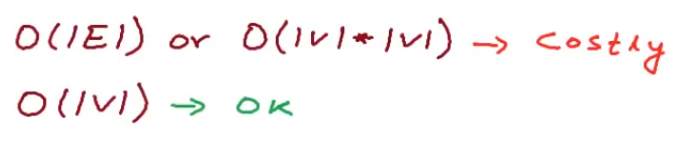 O(|E|) or O(|V|*|V|) → costly
O(|V|) → OK